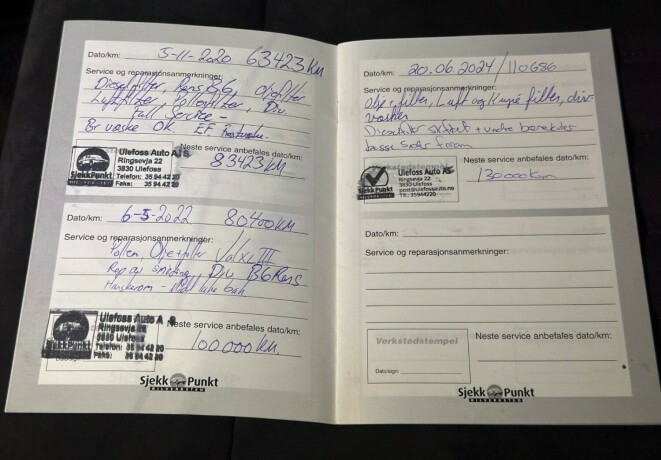 Dato/km: 5-11-2020 63423 KM
Service og reparasjonsanmerkninger:
Dieselfilter, Rens B6, oljefilter
Luftfilter, Pollenfilter, Div
Full Service -
Br væske OK. EF
Ulefoss Auto A/S
Ringsevja 22
3830 Ulefoss
Telefon: 35 94 42 20
Faks: 35 94 42
SjekkPunkt
Neste service anbefales dato/km:
83423 KM
Dato/km: 6-5-2022 80400 KM
Service og reparasjonsanmerkninger:
Pollen, Olje+filter
Div B6 Rens
Ulefoss Auto A S
Ringsevja 22
3830 Ulefoss
Telefon: 35 94 42 20
Faks: 35 94 42 20
SjekkPunkt
Neste service anbefales dato/km:
100000 km.
Sjekk Punkt
BILVERKSTED
Dato/km: 20.06.2024/110686
Service og reparasjonsanmerkninger:
Olje+filter, Luft og Kupé filter, div.
væsker
skiftet + vedre
foran
Verkstedstempel
Ulefoss Auto AS
Ringsevja 22
3830 Ulefoss
post@ulefossauto.no
Tlf.: 35944220
SjekkPunkt
Neste service anbefales dato/km:
130000km
Dato/km:
Service og reparasjonsanmerkninger:
Verkstedstempel
Dato/sign:
Neste service anbefales dato/km:
Sjekk Punkt
BILVERKSTED